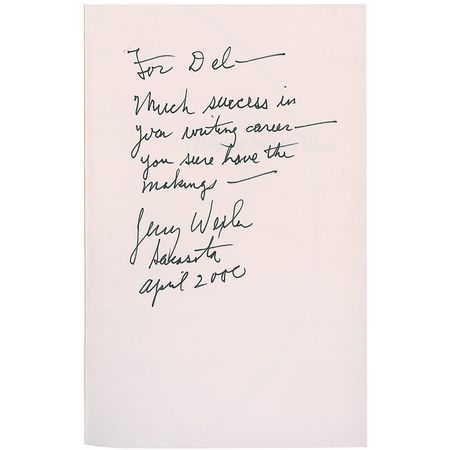 For Del—
Much success in
your writing career—
you sure have the
makings —
Jerry Wexler
Sarasota
April 2000